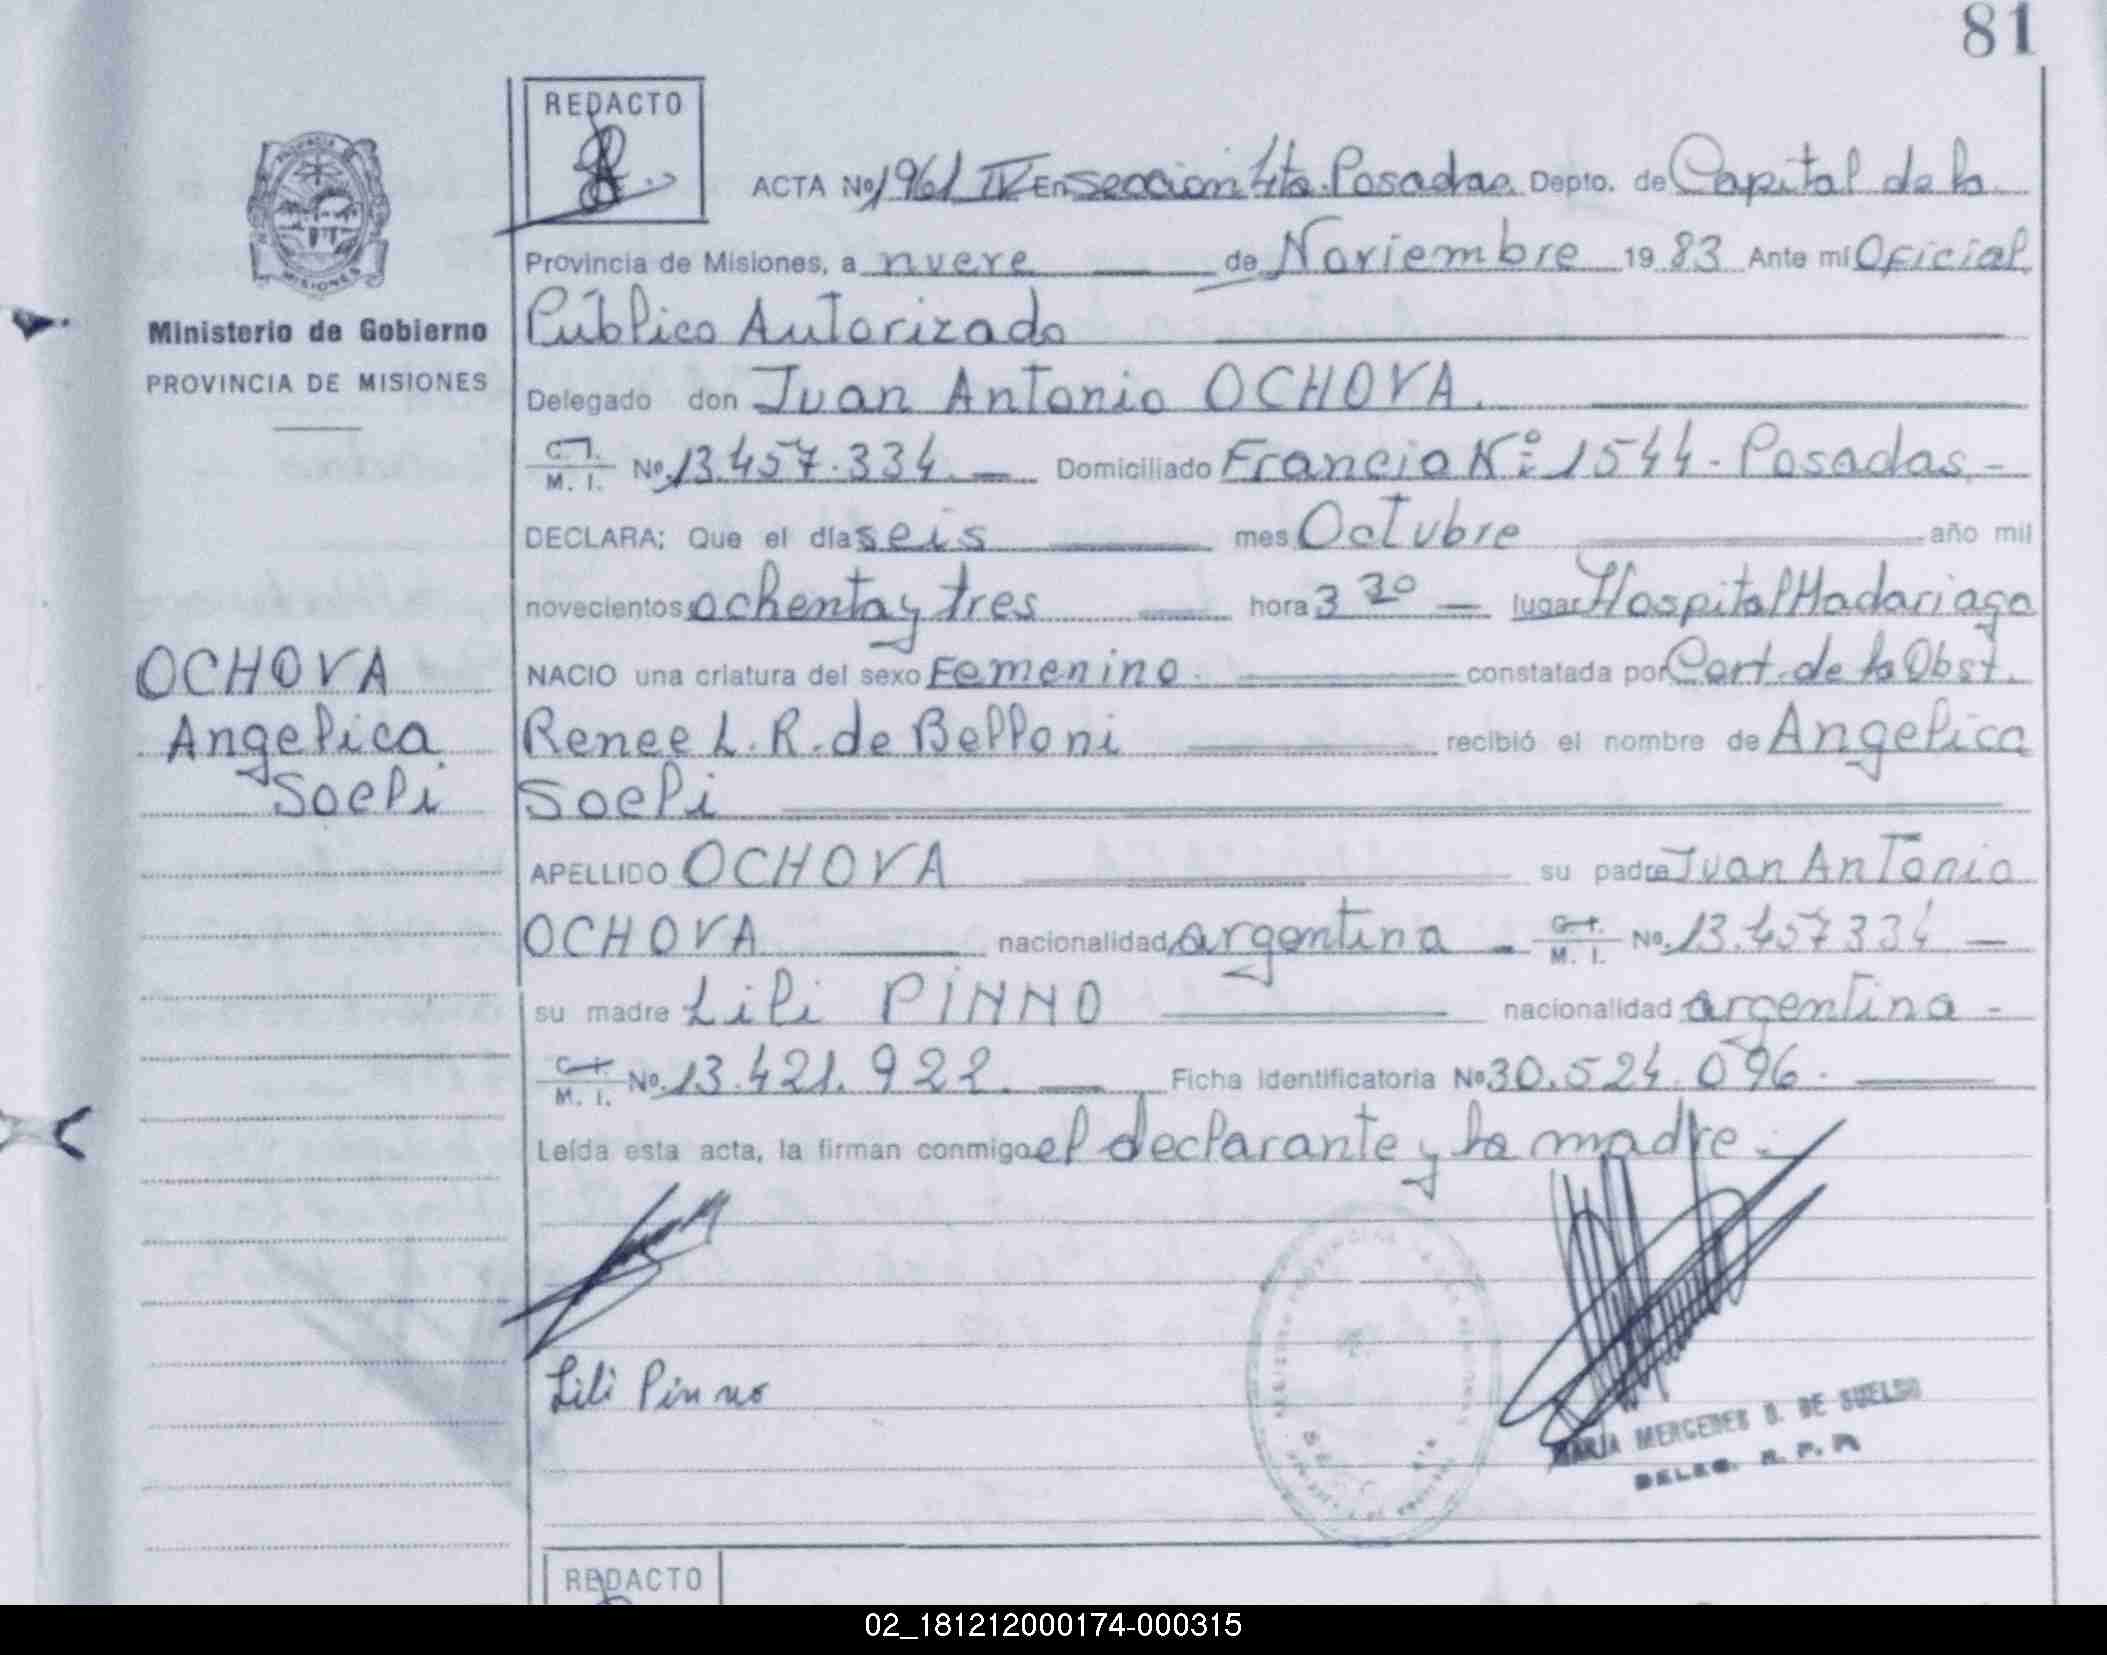 81
REDACTO
ACTA Nº 1961 IV En Seccion 4ta. Posadas Depto. de Capital de la
Provincia de Misiones, a nueve de Noviembre 1983 Ante mí Oficial
Público Autorizado
Delegado don Juan Antonio OCHOVA.
C. I. M. I. Nº 13.457.334.— Domiciliado Francia Nº 1544 - Posadas -
DECLARA; Que el día seis mes Octubre año mil
novecientos ochenta y tres hora 3 30 — lugar Hospital Madariaga
NACIO una criatura del sexo Femenino. constatada por Cert. de la Obst.
Renee L. R. de Belloni recibió el nombre de Angelica
Soeli
APELLIDO OCHOVA su padre Juan Antonio
OCHOVA nacionalidad argentina - C. I. M. I. Nº 13.457334 —
su madre Lili PINNO nacionalidad argentina -
C. I. M. I. Nº 13.421.922. Ficha Identificatoria Nº 30.524.096.
Leída esta acta, la firman conmigo el declarante y la madre.-
Lili Pinno
MARIA MERCEDES D. DE SUELDO
DELEG. R. P. P.
PROVINCIA
MISIONES
Ministerio de Gobierno
PROVINCIA DE MISIONES
OCHOVA
Angelica
Soeli
REDACTO
02_181212000174-000315